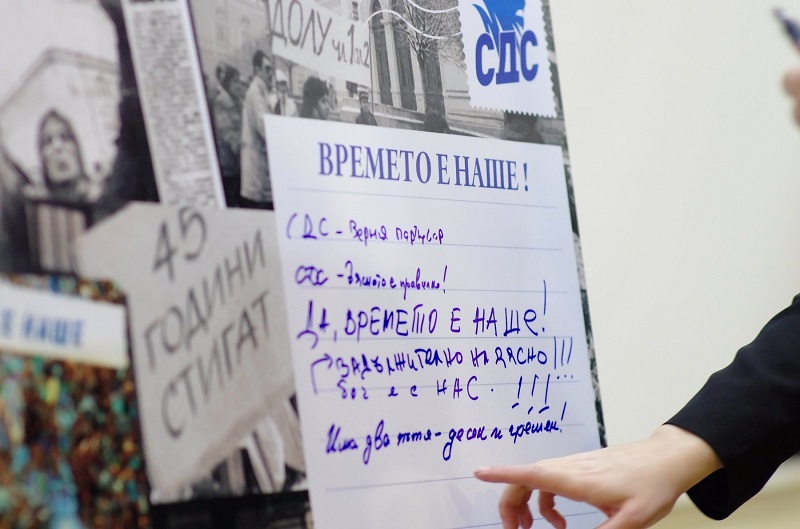 ДОЛУ чл 1 и 2
СДС
ВРЕМЕТО Е НАШЕ!
45
ГОДИНИ
СТИГАТ
Е НАШЕ
СДС - Верния партньор
СДС - Дясното е правилно!
ДА, ВРЕМЕТО Е НАШЕ!
ЗАДЪЛЖИТЕЛНО НАДЯСНО!!!
бог е с НАС. !!!
Има два пътя - десен и грешен!